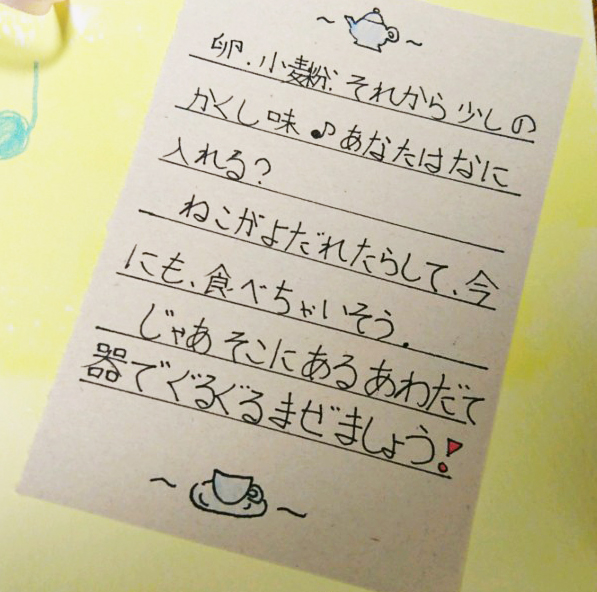 卵、小麦粉、それから少しの
かくし味♪あなたはなに
入れる?
ねこがよだれたらして、今
にも、食べちゃいそう.
じゃあそこにあるあわだて
器でぐるぐるまぜましょう!